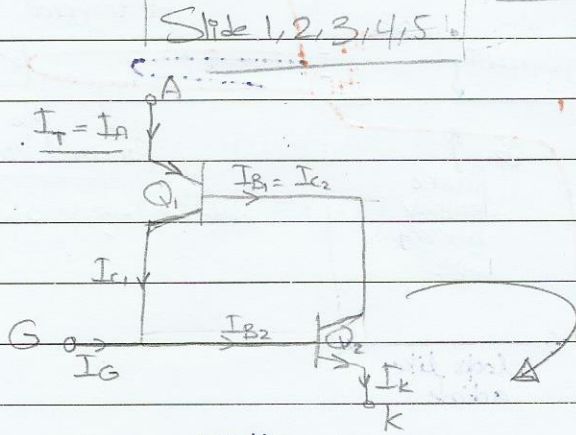 Slide 1,2,3,4,5
A
I_T = I_A
Q1
I_B1 = I_C2
I_C1
G
I_G
I_B2
Q2
I_K
K